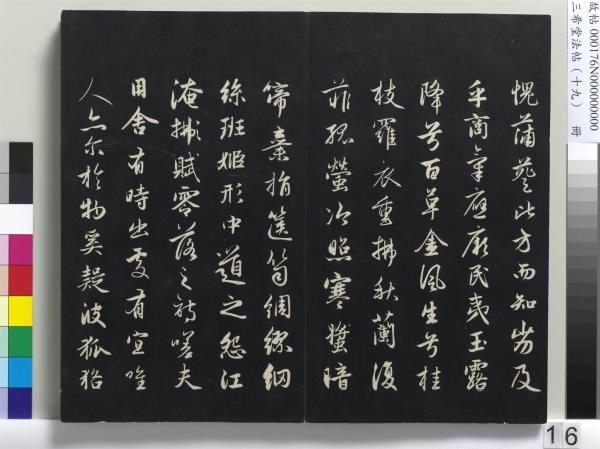 故帖 000176N000000000
三希堂法帖（十九） 冊
愧蒲葵比方而知劣及
乎商氣應厥民夷玉露
降兮百草金風生兮桂
枝羅衣重拂秋蘭復
菲孤螢冷照寒蛩暗
啼棄捐篋笥綢繆網
絲班姬形中道之怨江
淹擬賦零落之詩嗟夫
用舍有時出處有宜唯
人亦尓於物奚疑彼狐狢
16